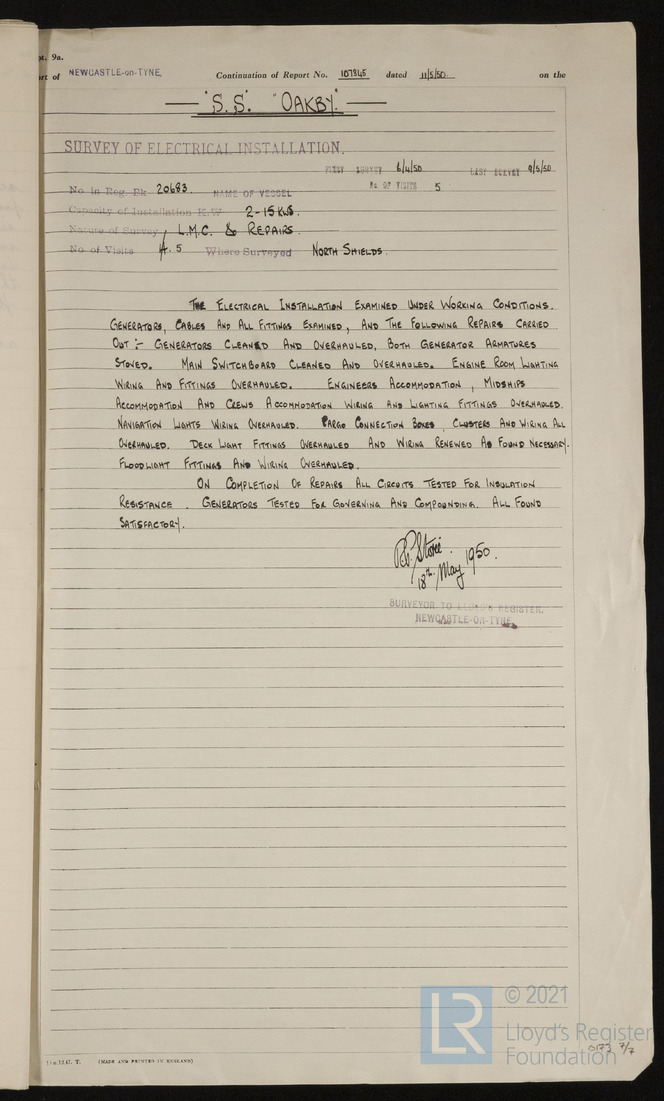 pt. 9a.
ort of NEWCASTLE-on-TYNE, Continuation of Report No. 107345 dated 11/5/50. on the
— "S.S. "OAKBY." —
SURVEY OF ELECTRICAL INSTALLATION.
FIRST SURVEY 6/4/50 LAST SURVEY 9/5/50
No in Reg. Bk 20683. NAME OF VESSEL No OF VISITS 5
Capacity of Installation K.W 2-15 KWS.
Nature of Survey L.M.C. & REPAIRS.
No of Visits 5 Where Surveyed NORTH SHIELDS.
THE ELECTRICAL INSTALLATION EXAMINED UNDER WORKING CONDITIONS.
GENERATORS, CABLES AND ALL FITTINGS EXAMINED, AND THE FOLLOWING REPAIRS CARRIED
OUT :- GENERATORS CLEANED AND OVERHAULED, BOTH GENERATOR ARMATURES
STOVED. MAIN SWITCHBOARD CLEANED AND OVERHAULED. ENGINE ROOM LIGHTING
WIRING AND FITTINGS OVERHAULED. ENGINEERS ACCOMMODATION, MIDSHIPS
ACCOMMODATION AND CREWS ACCOMMODATION WIRING AND LIGHTING FITTINGS OVERHAULED.
NAVIGATION LIGHTS WIRING OVERHAULED. CARGO CONNECTION BOXES, CLUSTERS AND WIRING ALL
OVERHAULED. DECK LIGHT FITTINGS OVERHAULED AND WIRING RENEWED AS FOUND NECESSARY.
FLOODLIGHT FITTINGS AND WIRING OVERHAULED.
ON COMPLETION OF REPAIRS ALL CIRCUITS TESTED FOR INSULATION
RESISTANCE. GENERATORS TESTED FOR GOVERNING AND COMPOUNDING. ALL FOUND
SATISFACTORY.
Storie.
18th May 1950.
SURVEYOR TO LLOYD'S REGISTER.
NEWCASTLE-ON-TYNE
(MADE AND PRINTED IN ENGLAND)
LR
© 2021
Lloyd's Register
Foundation
0173 7/7